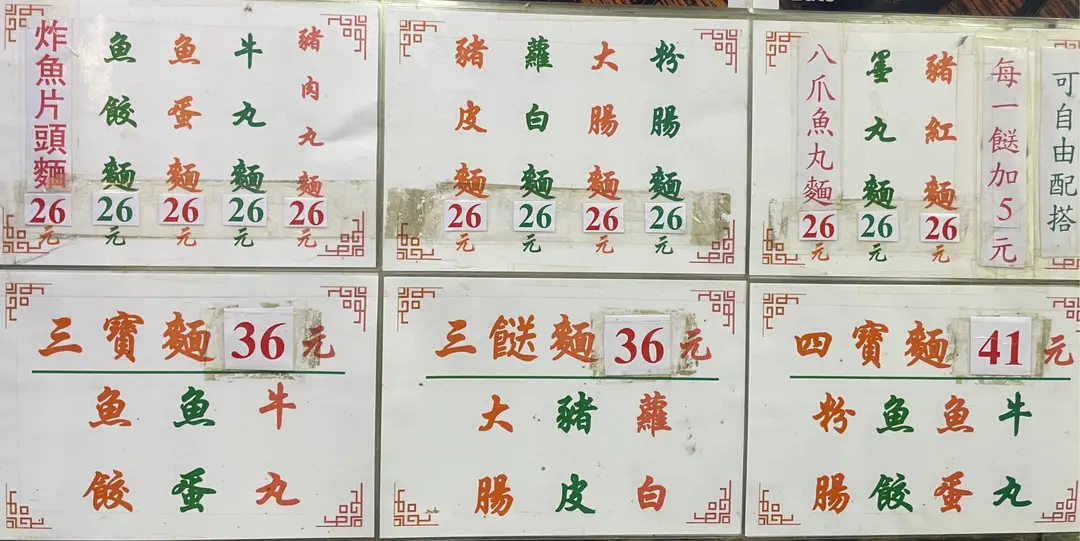 炸魚片頭麵 26元
魚餃麵 26元
魚蛋麵 26元
牛丸麵 26元
豬肉丸麵 26元
豬皮麵 26元
蘿白麵 26元
大腸麵 26元
粉腸麵 26元
八爪魚丸麵 26元
墨丸麵 26元
豬紅麵 26元
每一餸加5元
可自由配搭
三寶麵 36元
魚餃
魚蛋
牛丸
三餸麵 36元
大腸
豬皮
蘿白
四寶麵 41元
粉腸
魚餃
魚蛋
牛丸